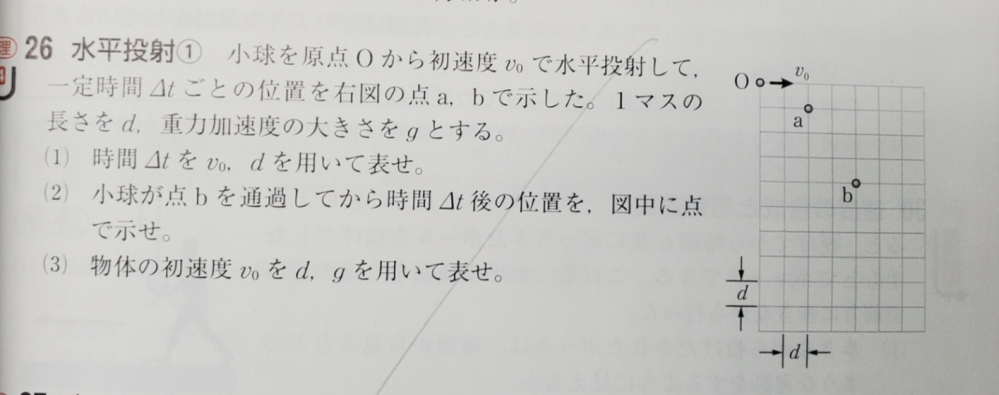 26 水平投射① 小球を原点Oから初速度v₀で水平投射して,
一定時間Δtごとの位置を右図の点a, bで示した。1マスの
長さをd, 重力加速度の大きさをgとする。
(1) 時間Δtをv₀, dを用いて表せ。
(2) 小球が点bを通過してから時間Δt後の位置を, 図中に点
で示せ。
(3) 物体の初速度v₀をd, gを用いて表せ。
O
v₀
a
b
d
d